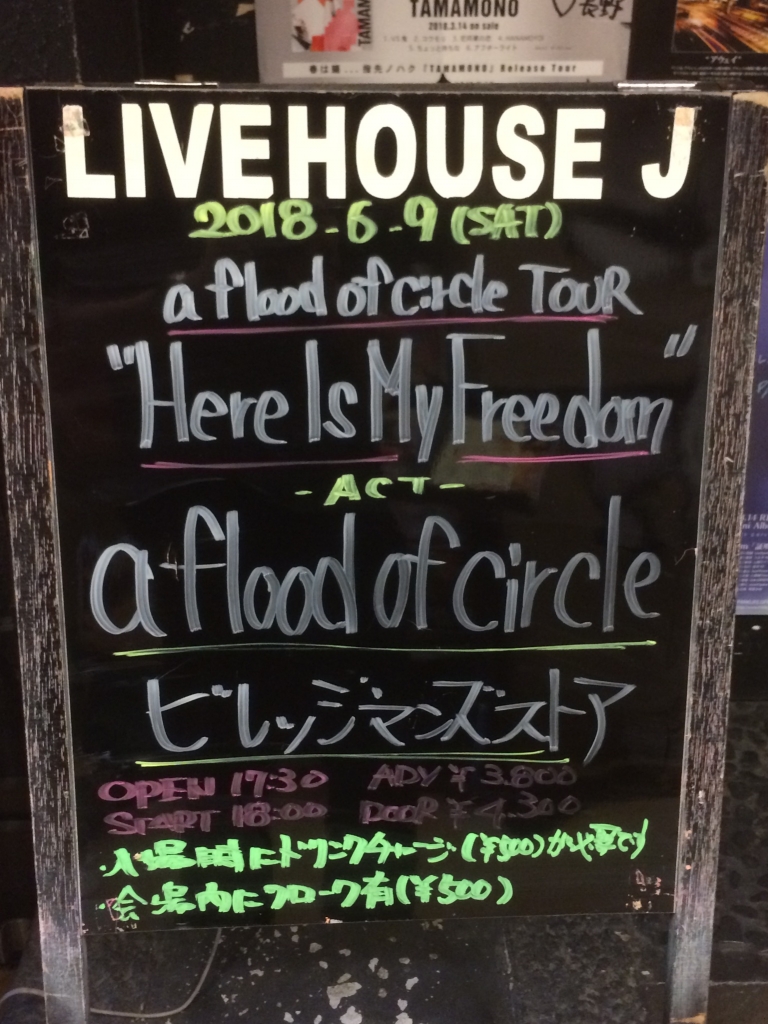 TAMAMONO
2018.3.14 on sale
長野
春は嫌...指先ノハク「TAMAMONO」Release Tour
LIVEHOUSE J
2018-6-9 (SAT)
a flood of circle TOUR
"Here Is My Freedom"
-ACT-
a flood of circle
ビレッジマンズストア
OPEN 17:30 ADV ¥3.800
START 18:00 DOOR ¥4.300
・入場時にドリンクチャージ(¥500)が必要です
・会場内にクローク有(¥500)